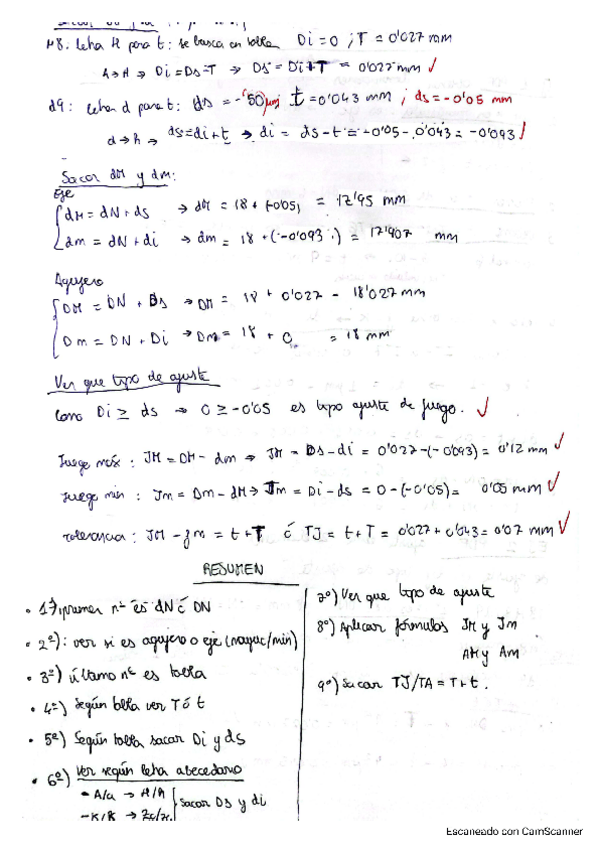 H8. Letra H para t: se busca en tabla Di = 0 ; T = 0'027 mm
A→H → Di = Ds-T → Ds = Di+T = 0'027 mm ✓
d9: Letra d para t: ds = -50 μm t = 0'043 mm ; ds = -0'05 mm
d → h → ds = di + t → di = ds - t = -0'05 - 0'043 = -0'093 ✓
Sacar dM y dm:
Eje
dM = dN + ds → dM = 18 + (-0'05) = 17'95 mm
dm = dN + di → dm = 18 + (-0'093) = 17'907 mm
Agujero
DM = DN + Ds → DM = 18 + 0'027 = 18'027 mm
Dm = DN + Di → Dm = 18 + 0 = 18 mm
Ver que tipo de ajuste
Como Di ≥ ds → 0 ≥ -0'05 es tipo ajuste de juego. ✓
Juego máx: JM = DM - dm → JM = Ds - di = 0'027 - (-0'093) = 0'12 mm ✓
Juego min: Jm = Dm - dM → Jm = Di - ds = 0 - (-0'05) = 0'05 mm ✓
tolerancia: JM - Jm = t + T ó TJ = t + T = 0'027 + 0'043 = 0'07 mm ✓
RESUMEN
• 1º) primer nº es dN ó DN
• 2º): ver si es agujero o eje (mayuc/min)
• 3º) último nº es tabla
• 4º) Según tabla ver T ó t
• 5º) Según tabla sacar Di y ds
• 6º) Ver según letra abecedario
- A/a → H/h
- K/k → Zc/zc
sacar Ds y di
7º) Ver que tipo de ajuste
8º) Aplicar fórmulas JM y Jm
AM y Am
9º) Sacar TJ/TA = T+t.
Escaneado con CamScanner